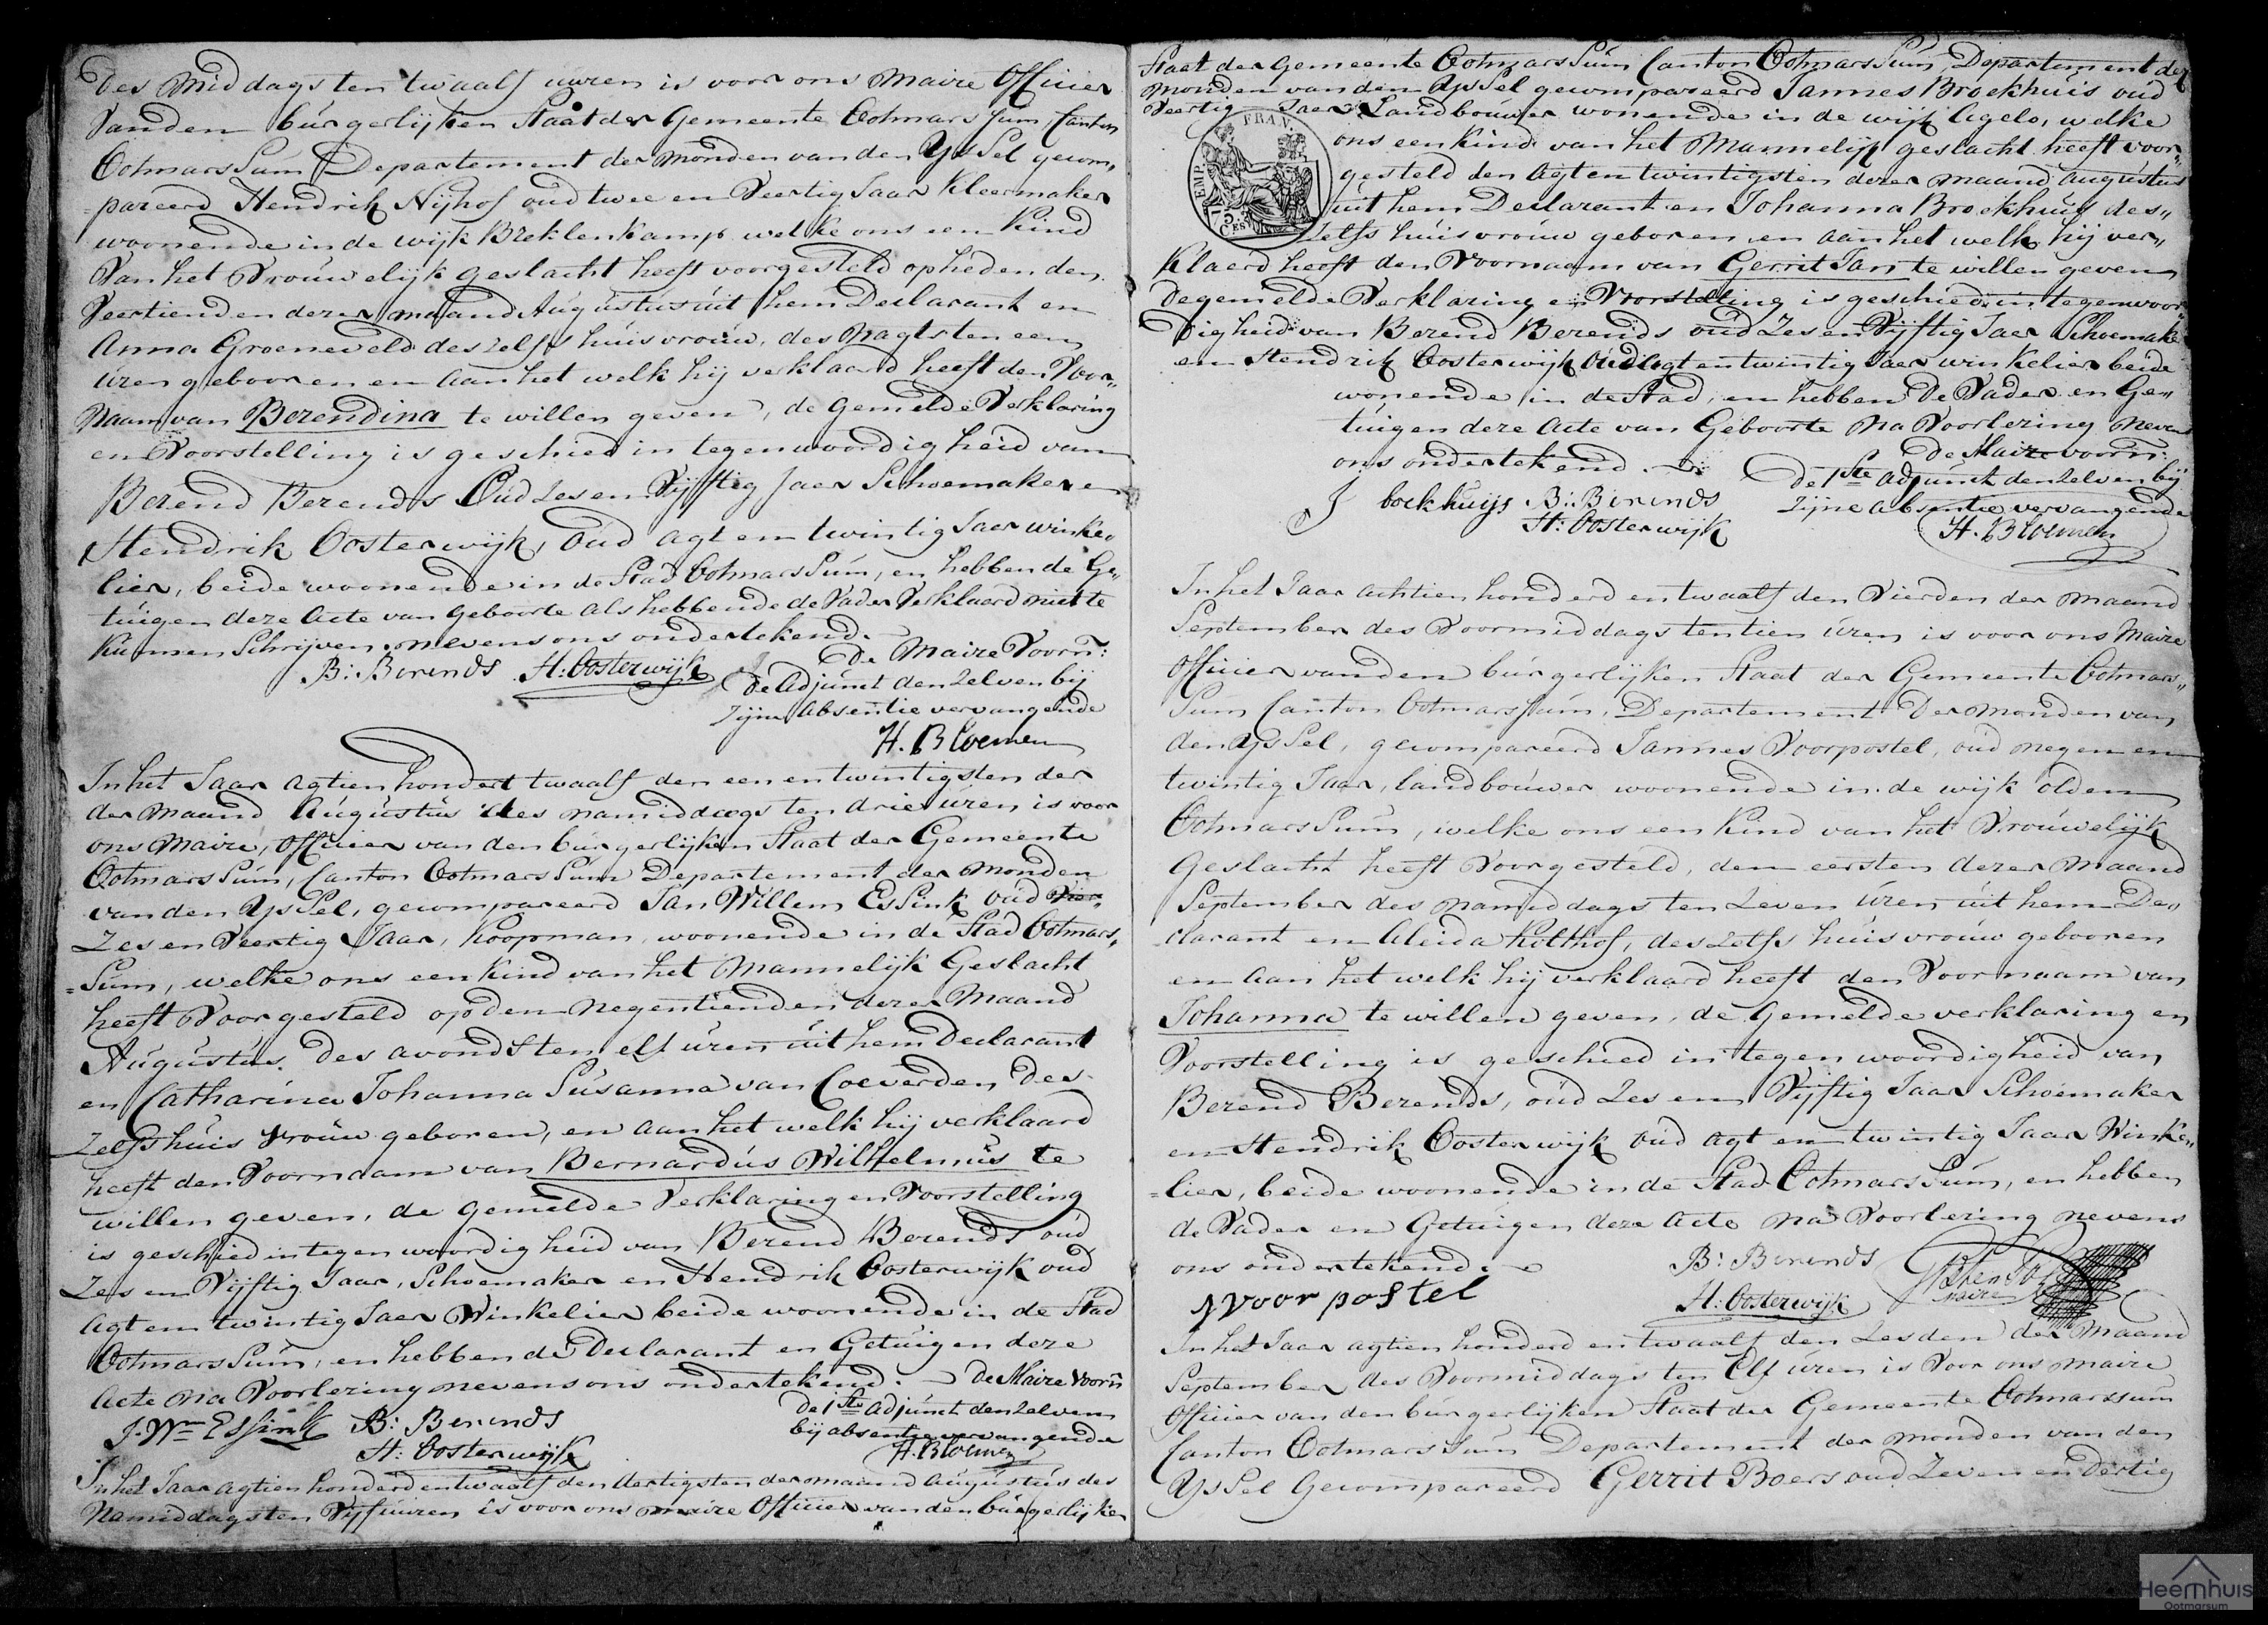 Des Middags ten twaalf uuren is voor ons Maire Officier
Vanden burgerlijken Staat der Gemeente Ootmarssum Canton
Ootmarssum Departement der Monden van den Yssel gecom„
=pareerd Hendrik Nijhof oud twee en Veertig Jaar Kleermaker
woonende in de wijk Breklenkamp welke ons een Kind
Van het Vrouwelijk geslacht heeft voorgesteld op heden den
Veertienden dezer maand Augustus uit hem Declarant en
Anna Groeneveld deszelfs huisvrouw, des Nagts ten een
uren gebooren en aan het welk hij verklaard heeft den Voor„
Naam van Berendina te willen geven, de Gemelde Verklaring
en Voorstelling is geschied in tegenwoordigheid van
Berend Berends Oud Zes en Vijftig Jaer Schoemaker en
Hendrik Oosterwijk, Oud agt en twintig Jaer winke„
lier, beide woonende in de Stad Ootmarssum, en hebben de Ge„
tuigen deze Acte van Geboorte als hebbende de Vader Verklaard niet te
Kunnen Schrijven nevens ons ondertekend.
De Maire Voorn:
B: Berends H: Oosterwijk
De Adjunct denzelven bij
Zijne Absentie vervangende
H. Bloemen
In het Jaar agtien hondert twaalf den een en twintigsten der
der Maand Augustus des namiddags ten drie uren is voor
ons Maire, Officier van den burgerlijken Staat der Gemeente
Ootmarssum, Canton Ootmarssum Departement der Monden
van den Yssel, gecompareerd Jan Willem Essink oud vier„
Zes en Veertig Jaar, Koopman woonende in de Stad Ootmars„
=sum, welke ons een Kind van het Mannelijk Geslacht
heeft Voorgesteld op den Negentienden dezer Maand
Augustus. Des avonds ten elf uren uit hem Declarant
en Catharina Johanna Susanna van Coeverden des
Zelfs huisvrouw geboren, en aan het welk hij verklaard
heeft den Voornaam van Bernardus Wilhelmus te
willen geven, de Gemelde Verklaring en Voorstelling
is geschied in tegenwoordigheid van Berend Berends oud
Zes en Vijftig Jaar, Schoemaker en Hendrik Oosterwijk oud
Agt en twintig Jaer Winkelier beide woonende in de Stad
Ootmarssum, en hebben de Declarant en Getuigen deze
Acte na Voorlezing nevens ons ondertekend. De Maire Voorn
De 1ste Adjunct denzelven
J. Wm Essink B: Berends
bij absentie vervangende
H: Oosterwijk
H. Bloemen
In het Jaar agtien honderd en twaalf den dertigsten der maand Augustus des
Namiddags ten Vijf uuren is voor ons maire Officier van den burgerlijken
Staat der Gemeente Ootmarssum Canton Ootmarssum, Departement der
Monden van den Yssel gecompareerd Jannes Broekhuis oud
Veertig Jaer Landbouwer wonende in de wijk Agelo, welke
EMP. FRAN.
75 CES
ons een kind van het Mannelijk geslacht heeft voor„
gesteld den Agt en twintigsten dezer maand augustus
uit hem Declarant en Johanna Broekhuis des„
zelfs huisvrouw geboren, en aan het welk hij ver„
Klaerd heeft den Voornaam van Gerrit Jan te willen geven
De gemelde Verklaring en Voorstelling is geschied in tegenwoor„
Digheid van Berend Berends oud Zes en Vijftig Jaer Schoemaker
en Hendrik Oosterwijk Oud agt en twintig Jaer winkelier beide
wonende in de Stad, en hebben De Vader en Ge„
tuigen deze Acte van Geboorte Na Voorlezing Nevens
ons ondertekend.
De Maire voorn:
De 1ste Adjunct denzelven bij
J boekhuijs B: Berends
Zijne Absentie vervangende
H: Oosterwijk
H. Bloemen
In het Jaar achtien honderd en twaalf den Vierden der Maand
September des Voormiddags ten tien uren is voor ons Maire
Officier van den burgerlijken Staat der Gemeente Ootmars„
sum Canton Ootmarssum, Departement Der Monden van
den Yssel, gecompareerd Jannes Voorpostel, oud negen en
twintig Jaar, landbouwer woonende in de wijk olden
Ootmarssum, welke ons een Kind van het Vrouwelijk
Geslacht heeft Voorgesteld, den eersten dezer Maand
September des namiddags ten Zeven uren uit hem De„
clarant en Aleida Kolthof, deszelfs huisvrouw gebooren
en aan het welk hij verklaard heeft den Voornaam van
Johanna te willen geven, de Gemelde verklaring en
Voorstelling is geschied in tegenwoordigheid van
Berend Berends, oud Zes en Vijftig Jaar Schoemaker
en Hendrik Oosterwijk oud agt en twintig Jaar Winke„
=lier, beide woonende in de Stad Ootmarssum, en hebben
de Vader en Getuigen deze Acte na Voorlezing nevens
ons ondertekend.
B: Berends
J Voorpostel
H: Oosterwijk
Maire
In het Jaar agtien honderd en twaalf den Zesden der Maand
September des Voormiddags ten Elf uren is Voor ons maire
Officier van den burgerlijken Staat der Gemeente Ootmarssum
Canton Ootmarssum Departement der Monden van den
Yssel Gecompareerd Gerrit Boers oud Zeven en Dertig
Heemhuis
Ootmarsum